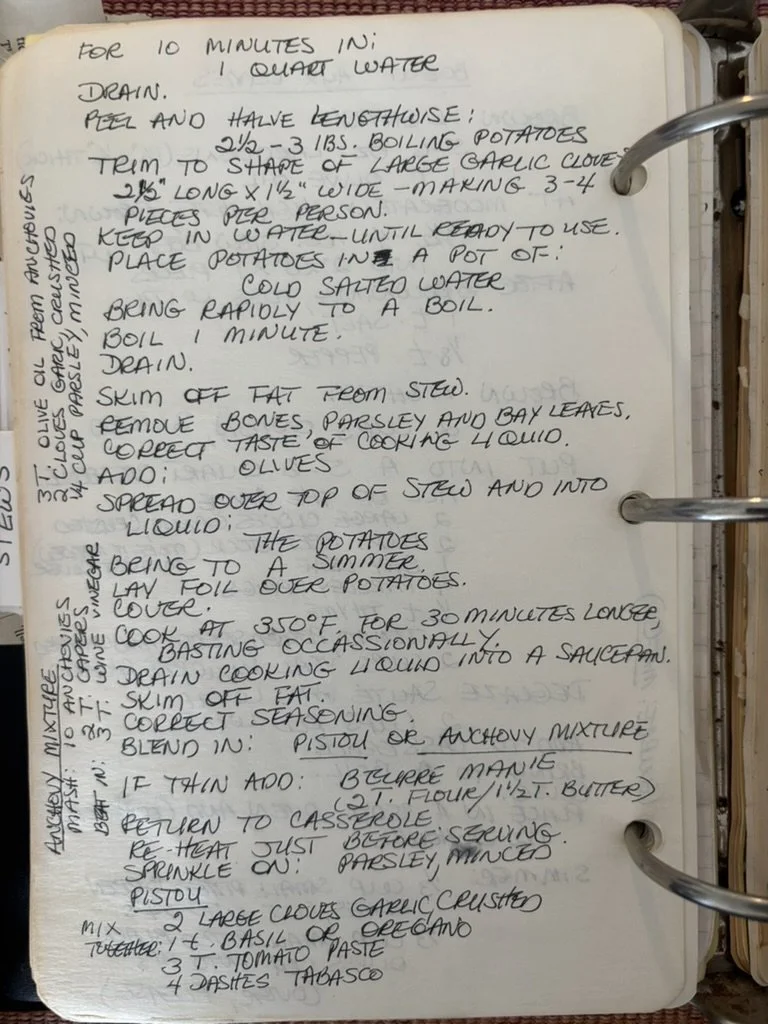 FOR 10 MINUTES IN:
1 QUART WATER
DRAIN.
PEEL AND HALVE LENGTHWISE:
2½ - 3 lBS. BOILING POTATOES
TRIM TO SHAPE OF LARGE GARLIC CLOVES
2½" LONG X 1½" WIDE - MAKING 3-4
PIECES PER PERSON.
KEEP IN WATER - UNTIL READY TO USE.
PLACE POTATOES IN A POT OF:
COLD SALTED WATER
BRING RAPIDLY TO A BOIL.
BOIL 1 MINUTE.
DRAIN.
SKIM OFF FAT FROM STEW.
REMOVE BONES, PARSLEY AND BAY LEAVES.
CORRECT TASTE OF COOKING LIQUID.
ADD: OLIVES
SPREAD OVER TOP OF STEW AND INTO
LIQUID: THE POTATOES
BRING TO A SIMMER.
LAY FOIL OVER POTATOES.
COVER.
COOK AT 350°F. FOR 30 MINUTES LONGER,
BASTING OCCASSIONALLY.
DRAIN COOKING LIQUID INTO A SAUCEPAN.
SKIM OFF FAT.
CORRECT SEASONING.
BLEND IN: PISTOU OR ANCHOVY MIXTURE
IF THIN ADD: BEURRE MANIE
(2 T. FLOUR/1½ T. BUTTER)
RETURN TO CASSEROLE
RE-HEAT JUST BEFORE SERVING.
SPRINKLE ON: PARSLEY, MINCED
PISTOU
MIX TOGETHER: 2 LARGE CLOVES GARLIC, CRUSHED
1 t. BASIL OR OREGANO
3 T. TOMATO PASTE
4 DASHES TABASCO
ANCHOVY MIXTURE
MASH: 10 ANCHOVIES
2 T. CAPERS
BEAT IN: 3 T. WINE VINEGAR
3 T. OLIVE OIL FROM ANCHOVIES
2 CLOVES GARLIC, CRUSHED
¼ CUP PARSLEY, MINCED
STEWS